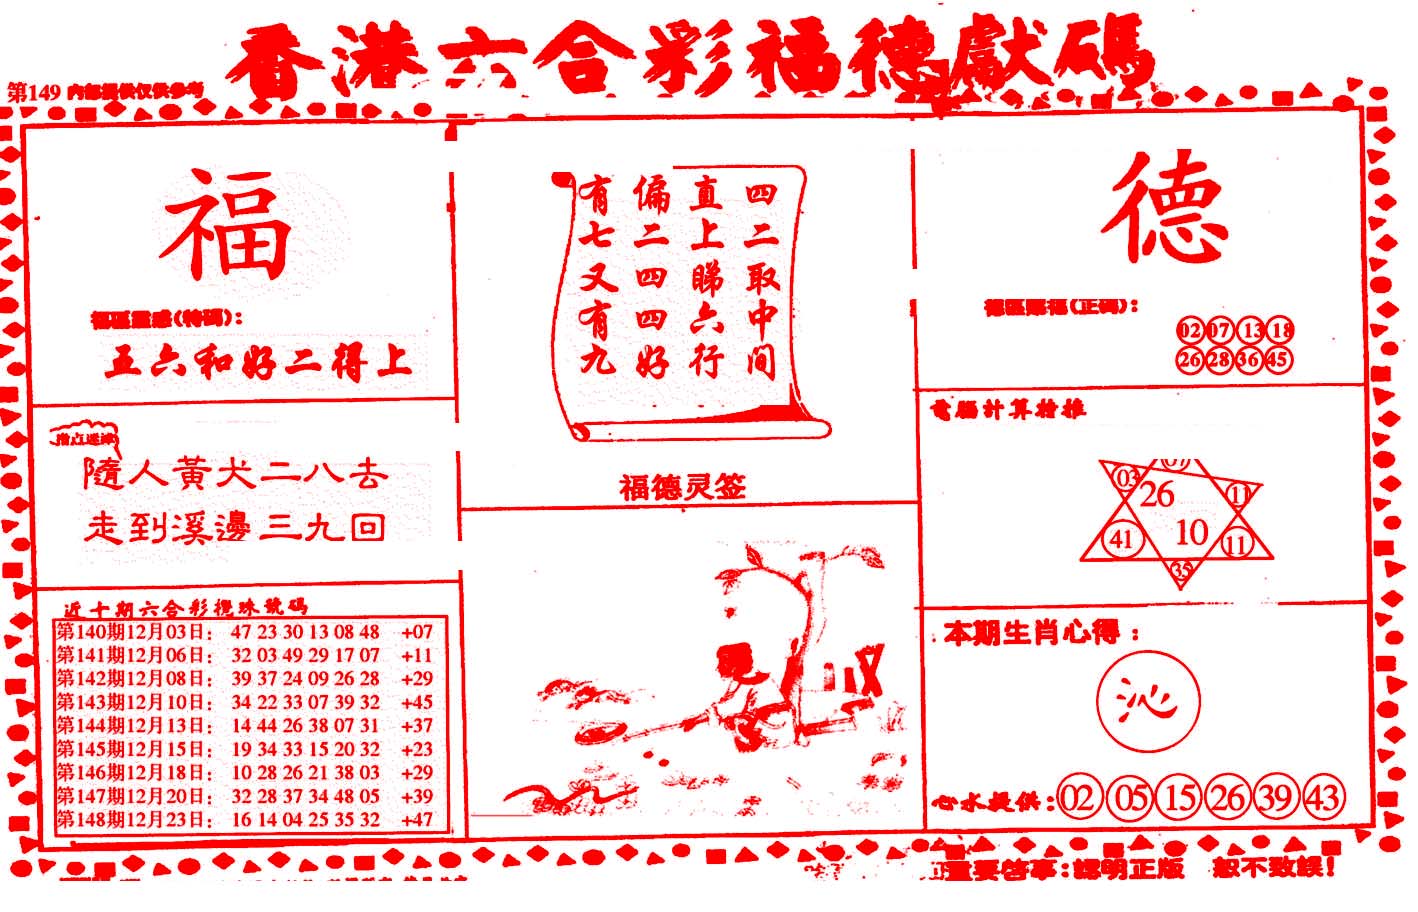 香港六合彩福德獻碼
第149 内部提供仅供參考
福
福區靈感(特碼):
五六和好二得上
指点迷津
隨人黃犬二八去
走到溪邊三九回
近十期六合彩攪珠號碼
第140期12月03日: 47 23 30 13 08 48 +07
第141期12月06日: 32 03 49 29 17 07 +11
第142期12月08日: 39 37 24 09 26 28 +29
第143期12月10日: 34 22 33 07 39 32 +45
第144期12月13日: 14 44 26 38 07 31 +37
第145期12月15日: 19 34 33 15 20 32 +23
第146期12月18日: 10 28 26 21 38 03 +29
第147期12月20日: 32 28 37 34 48 05 +39
第148期12月23日: 16 14 04 25 35 32 +47
四二取中间
直上睇六行
偏二四四好
有七又有九
福德灵签
德
德區賜福(正碼):
02 07 13 18
26 28 36 45
電腦計算精推
07
03 26 11
41 10 11
35
本期生肖心得:
沁
心水提供: 02 05 15 26 39 43
重要啓事:認明正版 恕不致誤!